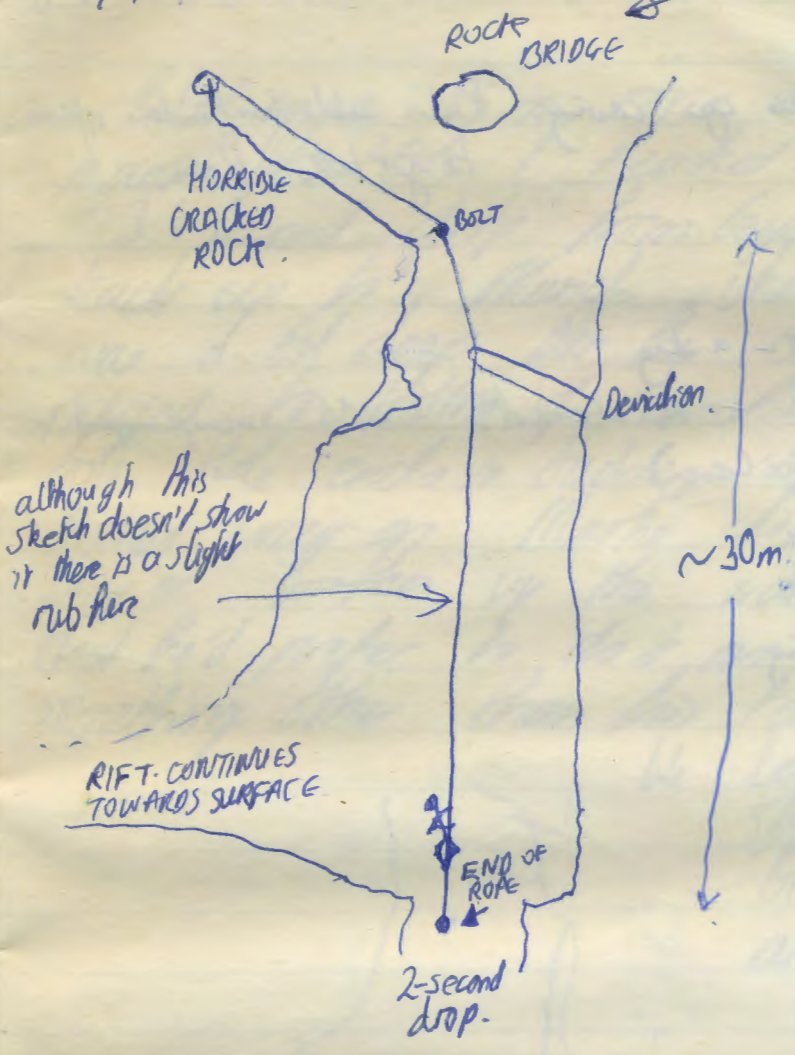 ROCK
BRIDGE
HORRIBLE
CRACKED
ROCK.
BOLT
Deviation.
although this
sketch doesn't show
it there is a slight
rub here
~30m.
RIFT CONTINUES
TOWARDS SURFACE
END OF
ROPE
2-second
drop.